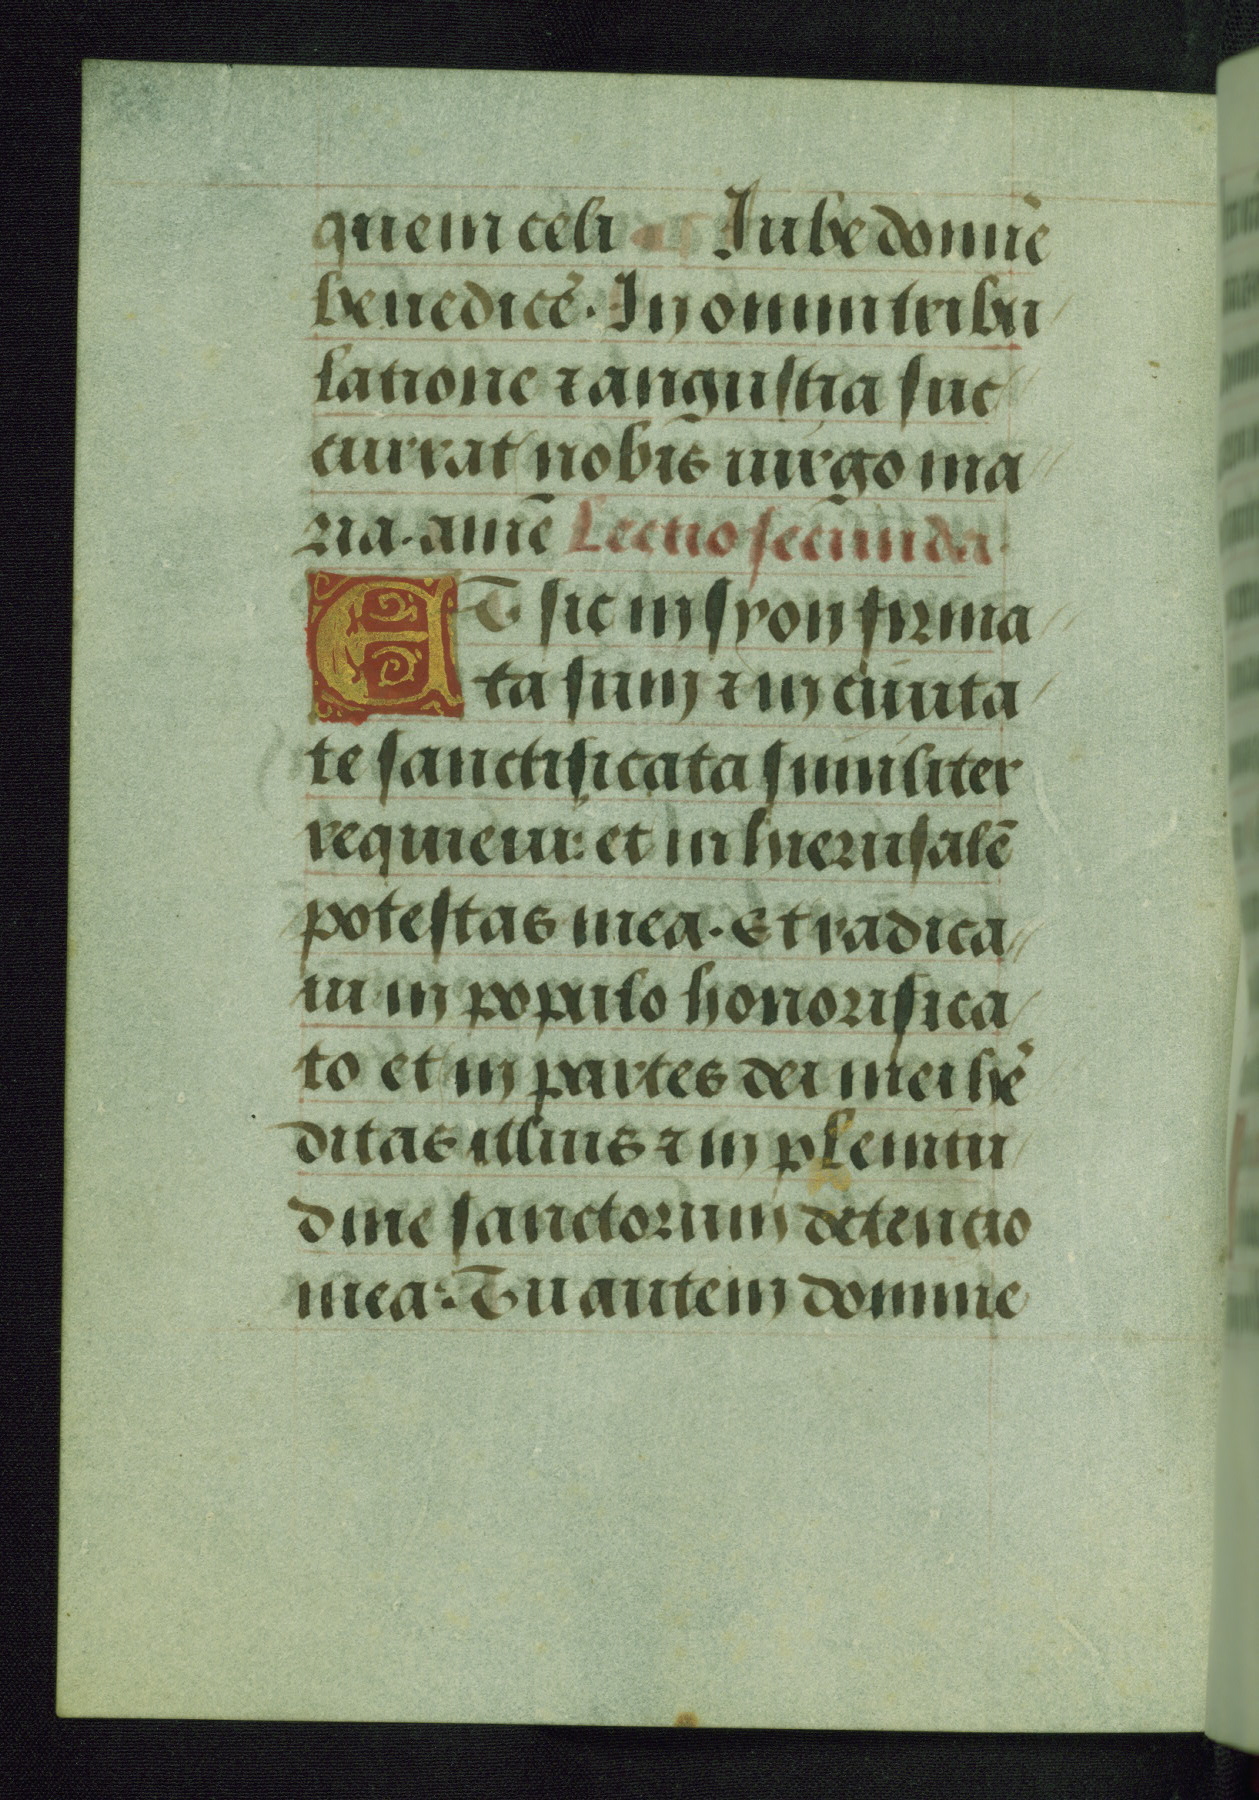 quem celi Iube domne̅
benedice̅. In omni tribu
latione ⁊ angustia suc
currat nobis uirgo ma
ria. ame̅ Lectio secunda.
ET sic in syon firma
ta sum ⁊ in ciuita
te sanctificata similiter
requieui: et in hierusale̅
potestas mea. Et radica
ui in populo honorifica
to et in partes dei mei he̾
ditas illius ⁊ in plenitu
dine sanctorum detentio
mea. Tu autem domine